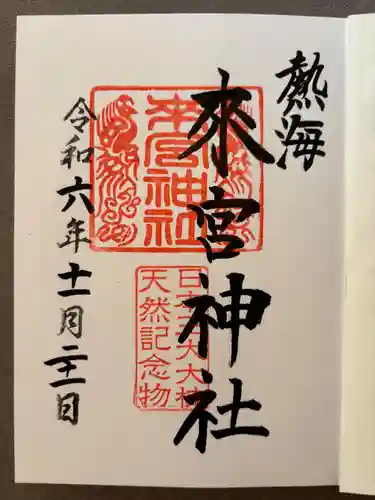 熱海
來宮神社
令和六年十一月二十一日
来宮神社
日本三大大楠
天然記念物